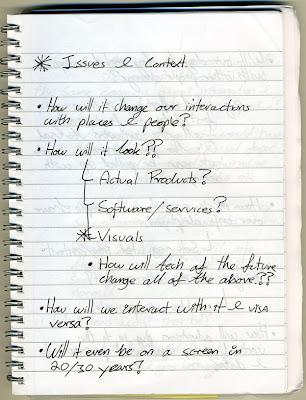 * Issues & Context.
• How will it change our interactions
with places & people?
• How will it look??
Actual Products?
Software/services?
* Visuals
• How will tech of the future
change all of the above??
• How will we interact with it & visa
versa?
• Will it even be on a screen in
20/30 years?